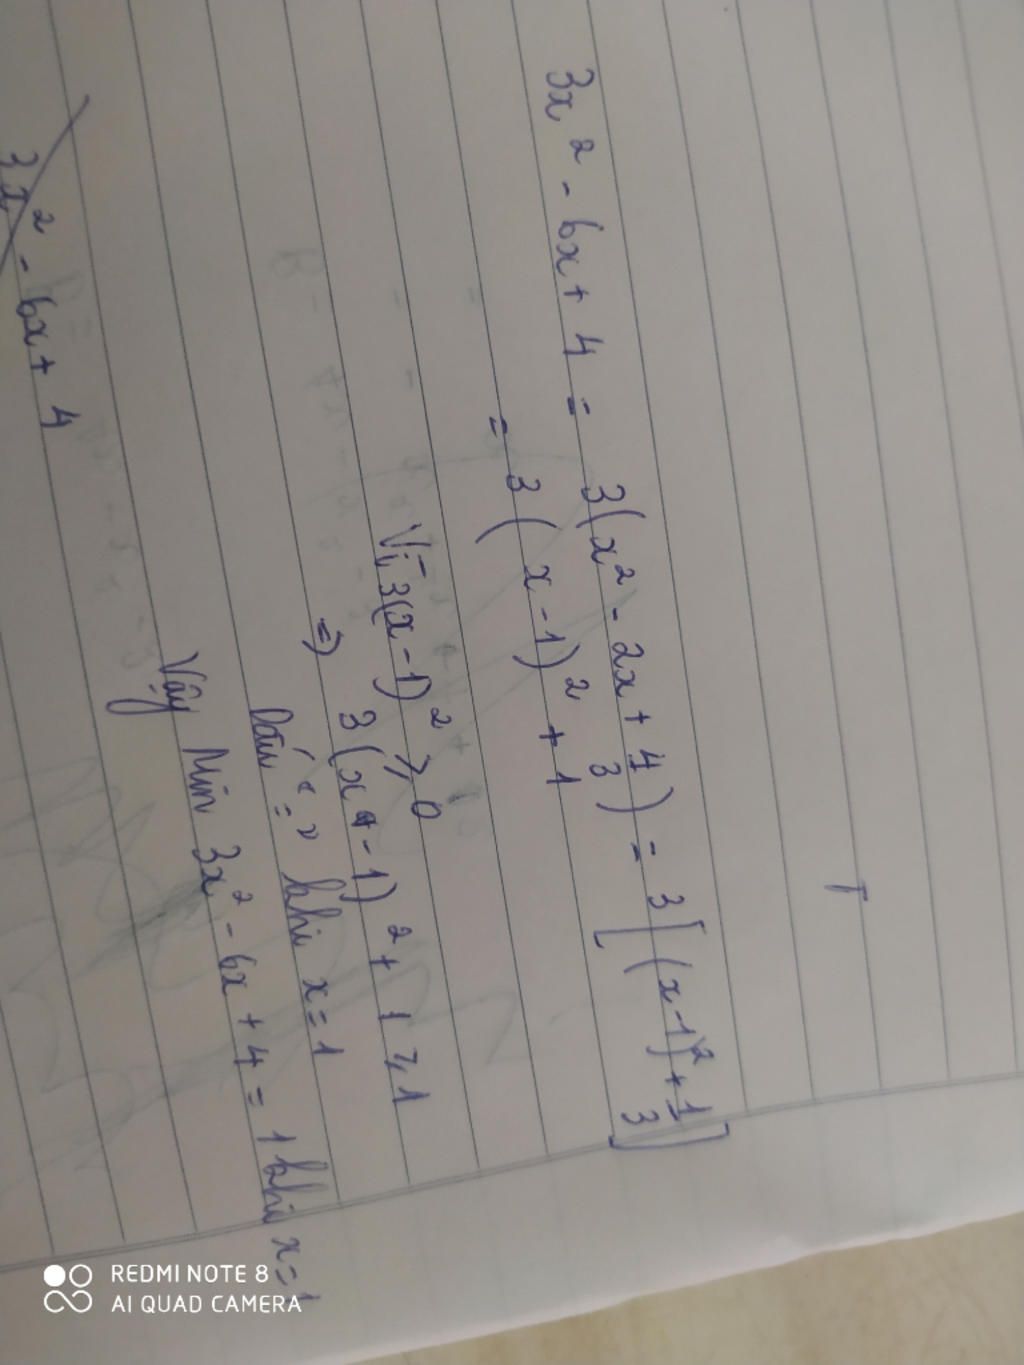 3x² - 6x + 4 = 3(x² - 2x + 4/3) = 3[(x-1)² + 1/3]
= 3(x-1)² + 1
Vì 3(x-1)² ≥ 0
=> 3(x-1)² + 1 ≥ 1
Dấu "=" khi x=1
Vậy Min 3x² - 6x + 4 = 1 khi x=1
3x² - 6x + 4
REDMI NOTE 8
AI QUAD CAMERA